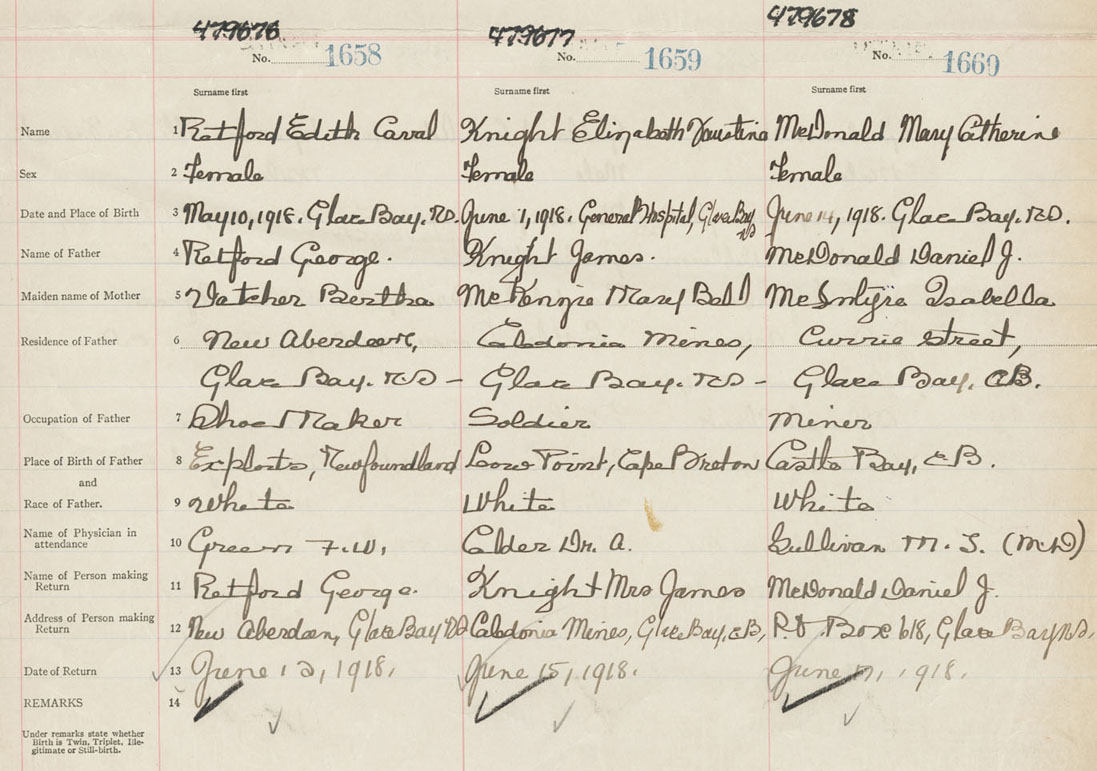 479676 479677 479678
No. 1658 No. 1659 No. 1660
Surname first Surname first Surname first
Name 1 Retford Edith Caval Knight Elizabeth Faustina McDonald Mary Catherine
Sex 2 Female Female Female
Date and Place of Birth 3 May 10, 1918. Glace Bay. N.S. June 7, 1918. General Hospital, Glace Bay N.S June 14, 1918. Glace Bay. N.S.
Name of Father 4 Retford George. Knight James. McDonald Daniel J.
Maiden name of Mother 5 Vatcher Bertha McKenzie Mary Bell McIntyre Isabella
Residence of Father 6 New Aberdeen, Caledonia Mines, Currie Street,
Glace Bay. N.S - Glace Bay. N.S - Glace Bay, C.B.
Occupation of Father 7 Shoe Maker Soldier Miner
Place of Birth of Father 8 Exploits, Newfoundland Low Point, Cape Breton Castle Bay, C.B.
and
Race of Father. 9 White White White
Name of Physician in
attendance 10 Green F.W. Calder Dr. A. Sullivan M. S. (M.D)
Name of Person making
Return 11 Retford George. Knight Mrs James McDonald Daniel J.
Address of Person making
Return 12 New Aberdeen, Glace Bay N.S Caledonia Mines, Glace Bay, C.B, P.O. Box 618, Glace Bay N.S.
Date of Return 13 June 12, 1918. June 15, 1918. June 17, 1918.
REMARKS 14
Under remarks state whether
Birth is Twin, Triplet, Ille-
gitimate or Still-birth.